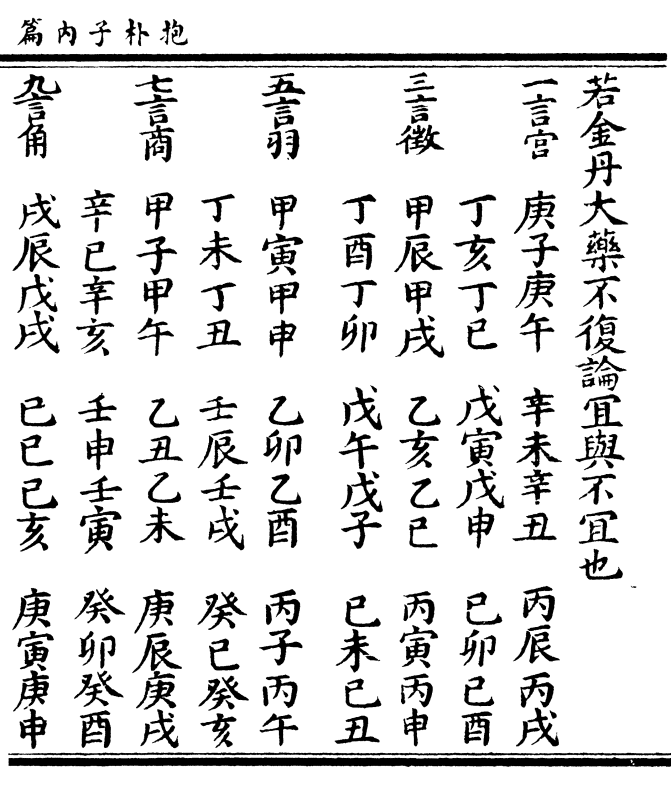 抱朴子內篇
若金丹大藥不復論冝與不冝也
一言宮 庚子庚午 辛未辛丑 丙辰丙戌
丁亥丁巳 戊寅戊申 己卯己酉
三言徵 甲辰甲戌 乙亥乙巳 丙寅丙申
丁酉丁卯 戊午戊子 己未己丑
五言羽 甲寅甲申 乙卯乙酉 丙子丙午
丁未丁丑 壬辰壬戌 癸巳癸亥
七言商 甲子甲午 乙丑乙未 庚辰庚戌
辛巳辛亥 壬申壬寅 癸卯癸酉
九言角 戊辰戊戌 己巳己亥 庚寅庚申